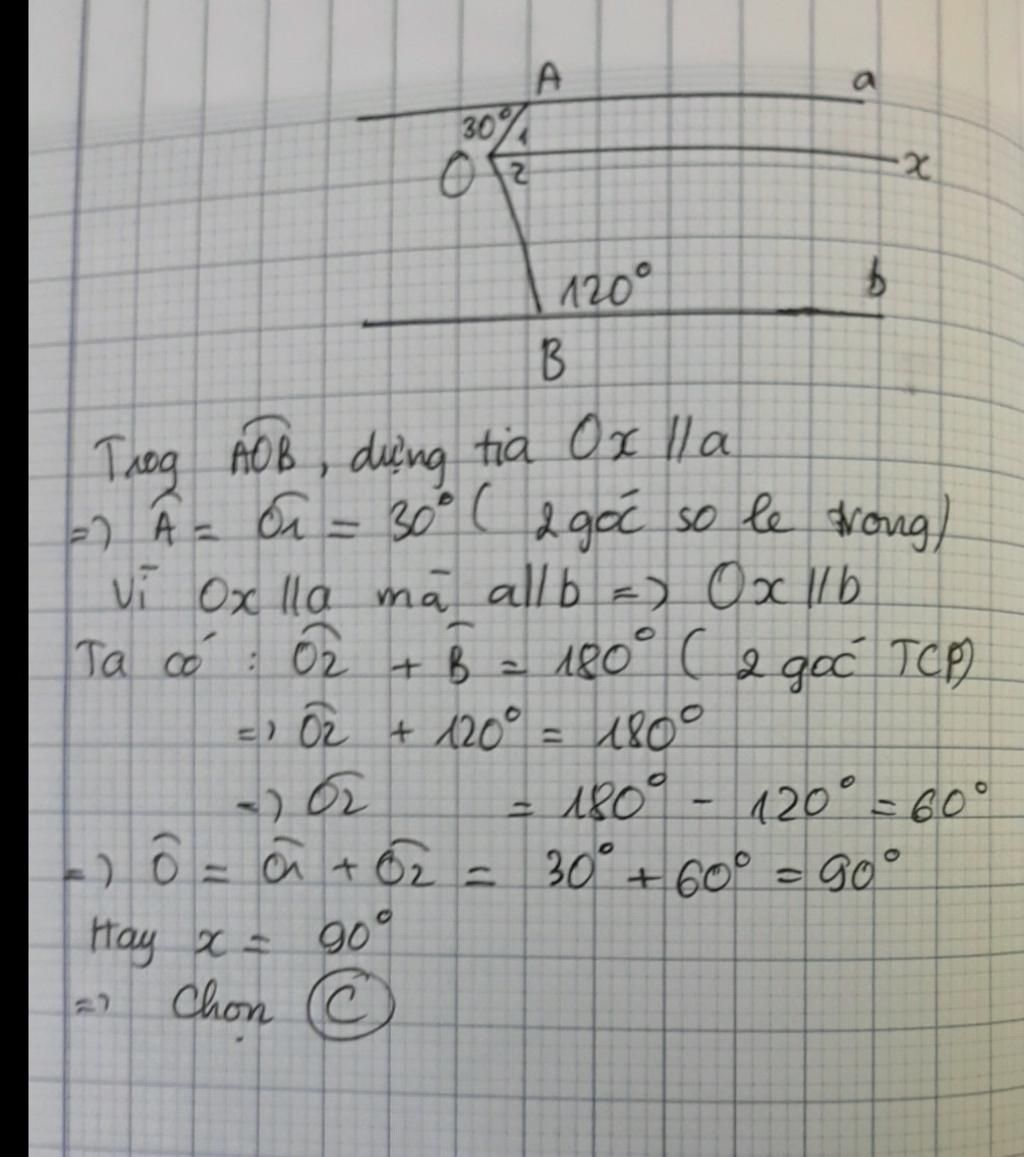 A a
30°
1
O 2 x
120° b
B
Trog AOB, dựng tia Ox // a
=> Â = O1 = 30° ( 2 góc so le trong)
Vì Ox // a mà a // b => Ox // b
Ta có : O2 + B = 180° ( 2 góc TCP)
=> O2 + 120° = 180°
=> O2 = 180° - 120° = 60°
=> O = O1 + O2 = 30° + 60° = 90°
Hay x = 90°
=> Chọn C